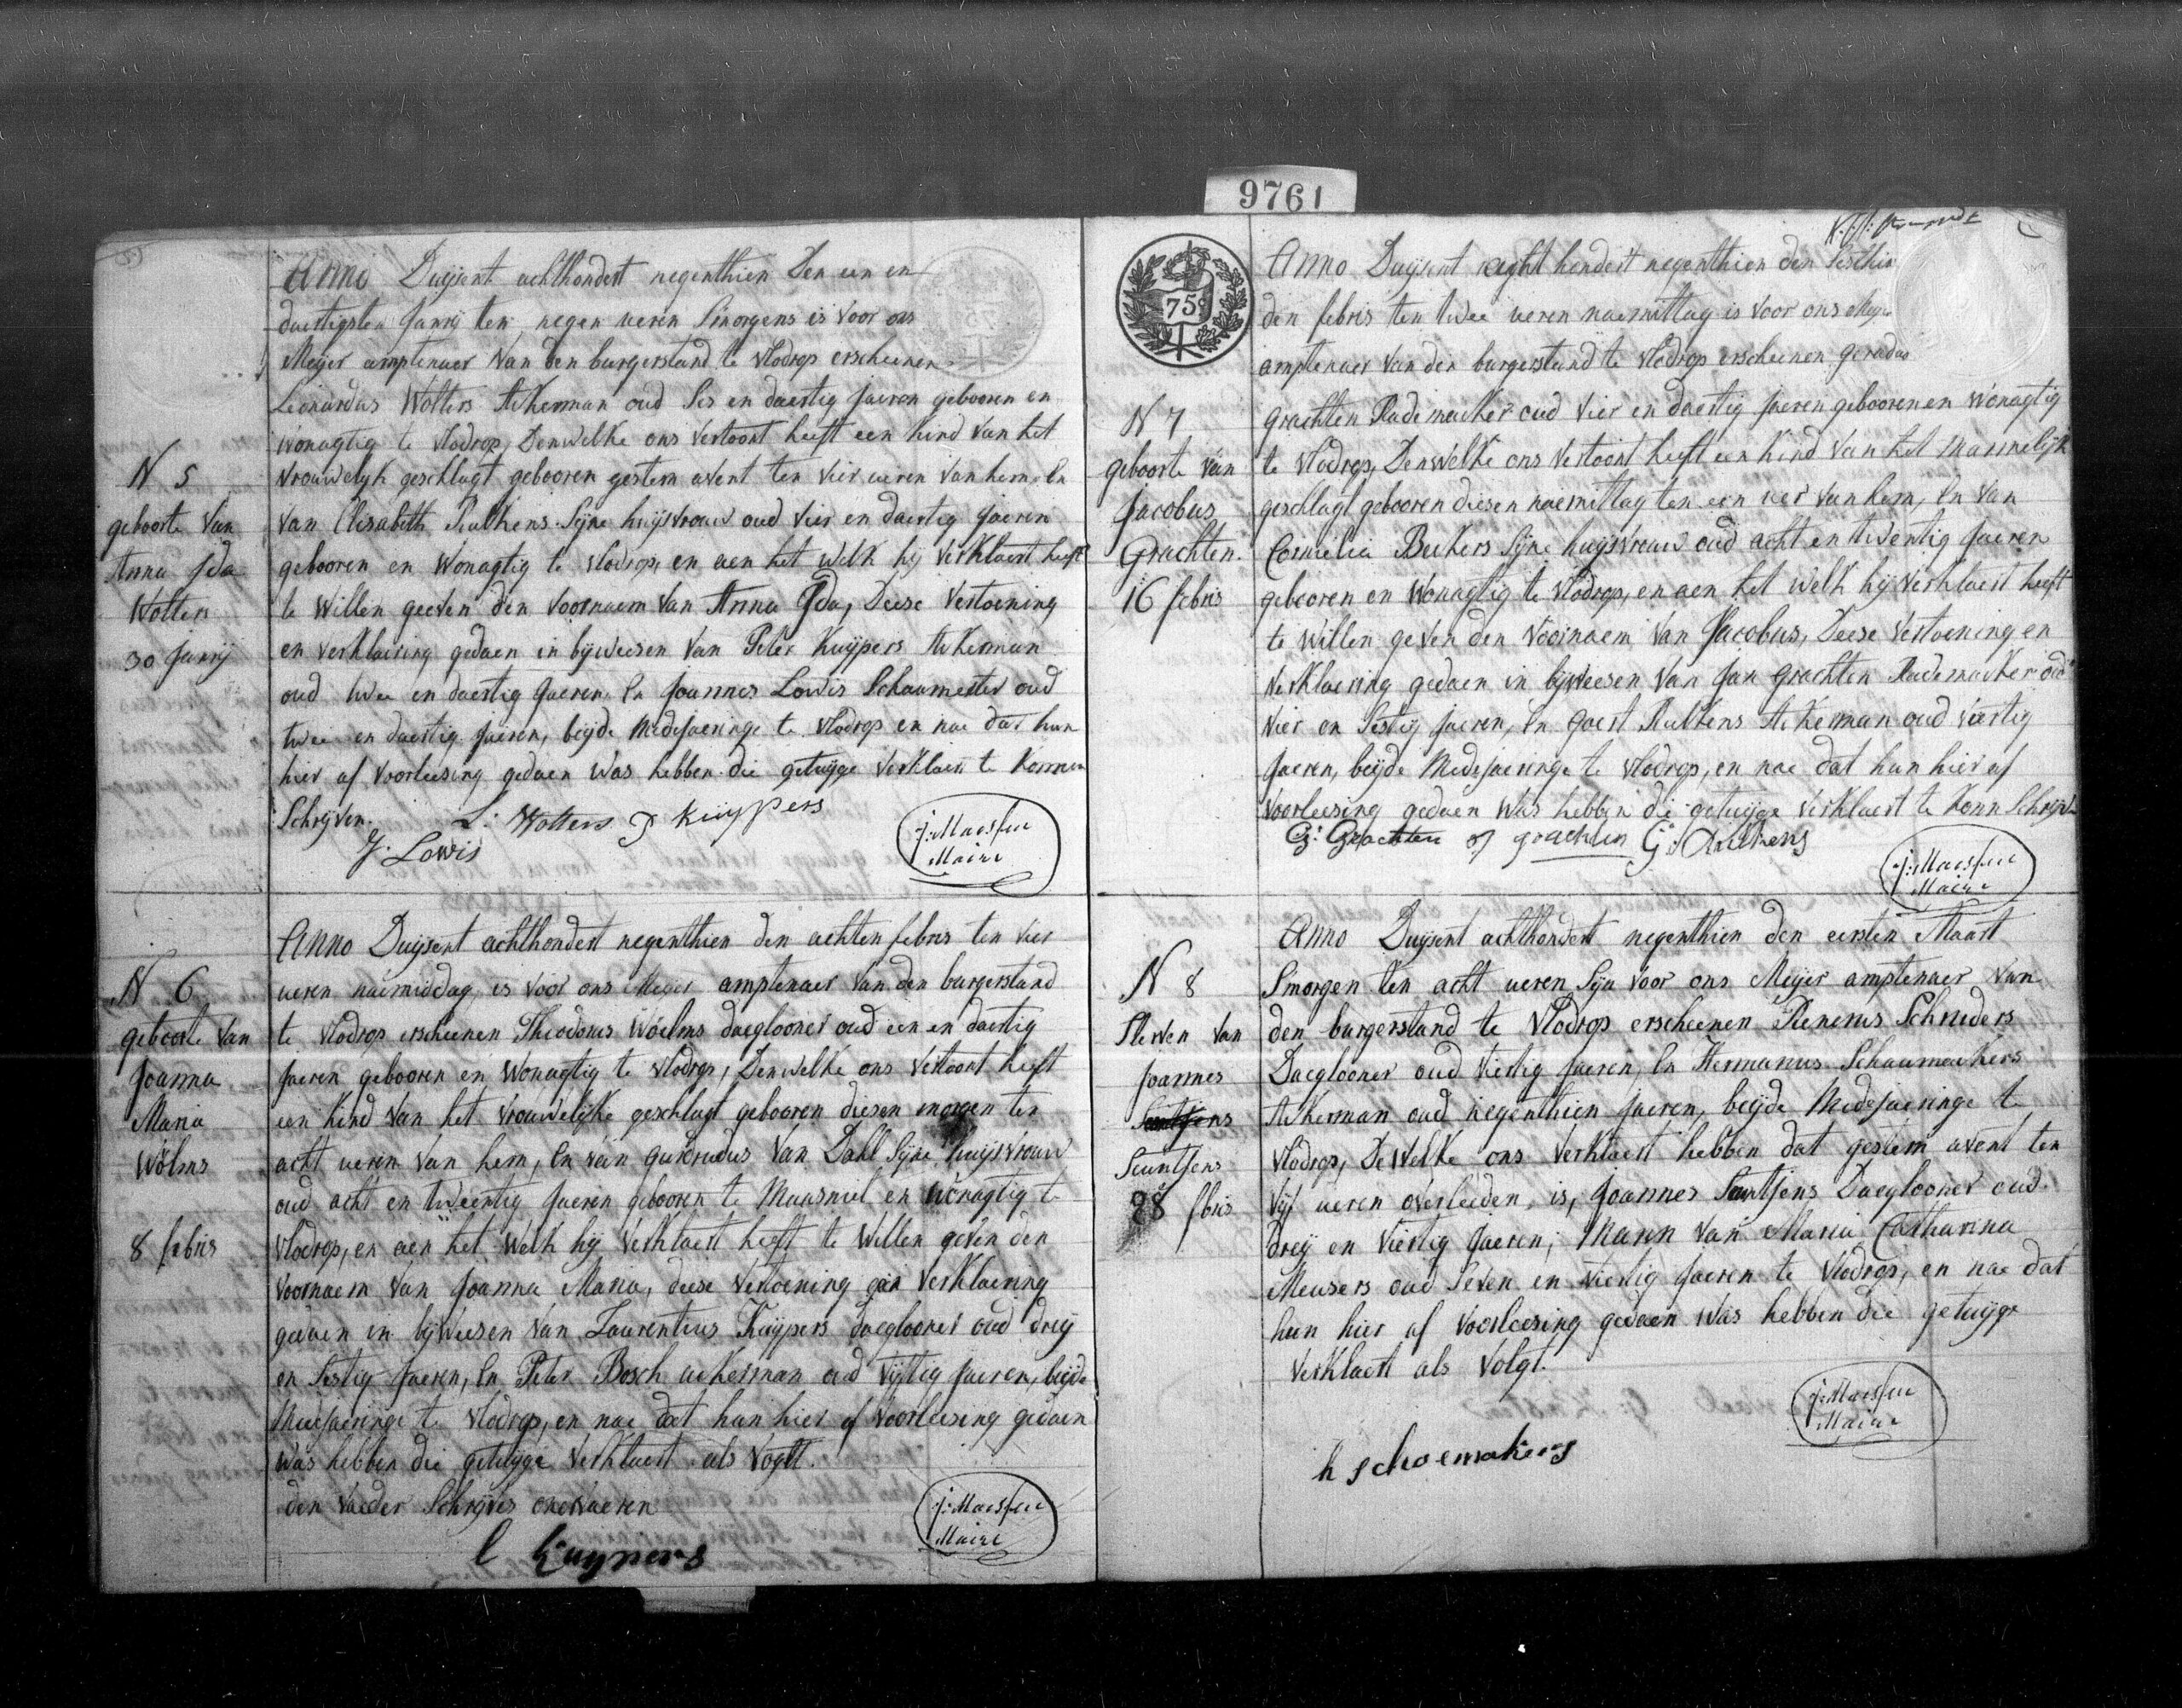 9761
Anno Duijsent achthondert negenthien den een en
daertigsten janrij ten negen ueren Smorgens is voor ons
Meijer amptenaer van den burgerstand te vlodrop erscheenen
Leonardus Wolters Akerman oud ses en daertig jaeren gebooren en
wonagtig te vlodrop, Denwelke ons vertoont heeft een kind van het
vrouwelijk geschlagt gebooren gestern avent ten vier ueren van hem, En
van Elisabeth Rulkens Sijne huijsvrouw oud vier en daertig jaeren
gebooren en wonagtig te vlodrop, en aen het welk hij verklaert heeft
te willen geeven den voornaem van Anna Ida, Deese vertoening
en verklaering gedaen in bijweesen van Peter Kuijpers Akerman
oud twee en daertig jaeren En joannes Lowis Schaumester oud
twee en daertig jaeren, beijde medejaeringe te vlodrop en nae dat hun
hier af voorleesing gedaen was hebben die getuijge verklaert te konnen
Schrijven.
L: Wolters P kuijpers
J. Lowis
j: Maessen
Maire
N 5
geboorte van
Anna Ida
Wolters
30 janrij
Anno Duijsent achthondert negenthien den achten febris ten vier
ueren naemiddag is voor ons Meijer amptenaer van den burgerstand
te vlodrop erscheenen Theodorus Wöelms daeglooner oud een en daertig
jaeren gebooren en wonagtig te vlodrop, Denwelke ons vertoont heeft
een kind van het vrouwelijke geschlagt gebooren diesen morgen ten
acht ueren van hem, En van gurdrudus van Dahl Sijne huijsvrouw
oud acht en tweentig jaeren gebooren te Maasniel en wonagtig te
vlodrop, en aen het welk hij verklaert heeft te willen geven den
voornaem van joanna Maria, deese vertoening en verklaering
gedaen in bijweesen van Laurentius Kuijpers daeglooner oud dreij
en sestig jaeren, En Peter Bosch akerman oud vijftig jaeren, beijde
Medejaeringe te vlodrop, en nae dat hun hier af voorleesing gedaen
was hebben die getuijge verklaert als vogt.
den vaeder Schrijves onervaeren
l kuypers
j: Maessen
Maire
N 6
geboorte van
joanna
Maria
Wölms
8 febris
75c
Anno Duijsent aght hondert negenthien den sesthin
den febris ten twee ueren naemittag is voor ons Meijer
amptenaer van den burgerstand te vlodrop erscheenen geradus
grachten Rademaeker oud vier en daertig jaeren gebooren en wonagtig
te vlodrop, Denwelke ons vertoont heeft een kind van het mannelijk
geschlagt gebooren diesen naemittag ten een uer van hem, En van
Cornelia Beckers Sijne huijsvrouw oud acht en twentig jaeren
gebooren en wonagtig te vlodrop, en aen het welk hij verklaert heeft
te willen geven den voornaem van Jacobus, Deese vertoening en
verklaering gedaen in bijweesen van Jan grachten Rademaeker oud
vier en sestig jaeren, En goert Rulkens Akerman oud viertig
jaeren, beijde Medejaeringe te vlodrop, en nae dat hun hier af
voorleesing gedaen was hebben die getuijge verklaert te konn Schrijven
G: Grachten J grachten G: Rulkens
j: Maessen
Maire
N 7
geboorte van
Jacobus
Grachten.
16 febris
Anno Duijsent achthondert negenthien den eersten Maart
Smorgen ten acht ueren Sijn voor ons Meijer amptenaer van
den burgerstand te Vlodrop erscheenen Renerus Schruders
Daeglooner oud viertig jaeren, En Hermanus Schaumaekers
Akerman oud negenthien jaeren, beijde Medejaeringe te
vlodrop, Dewelke ons verklaert hebben dat gestern avent ten
vijf ueren overleiden, is, joannes Seuntjens Daeglooner oud
dreij en viertig jaeren, Mann van Maria Catharina
Meusers oud seven en viertig jaeren te vlodrop, en nae dat
hun hier af voorleesing gedaen was hebben die getuijge
verklaert als volgt.
h schoemakers
j: Maessen
Maire
N 8
Sterven van
joannes
Seuntjens
28 fbris